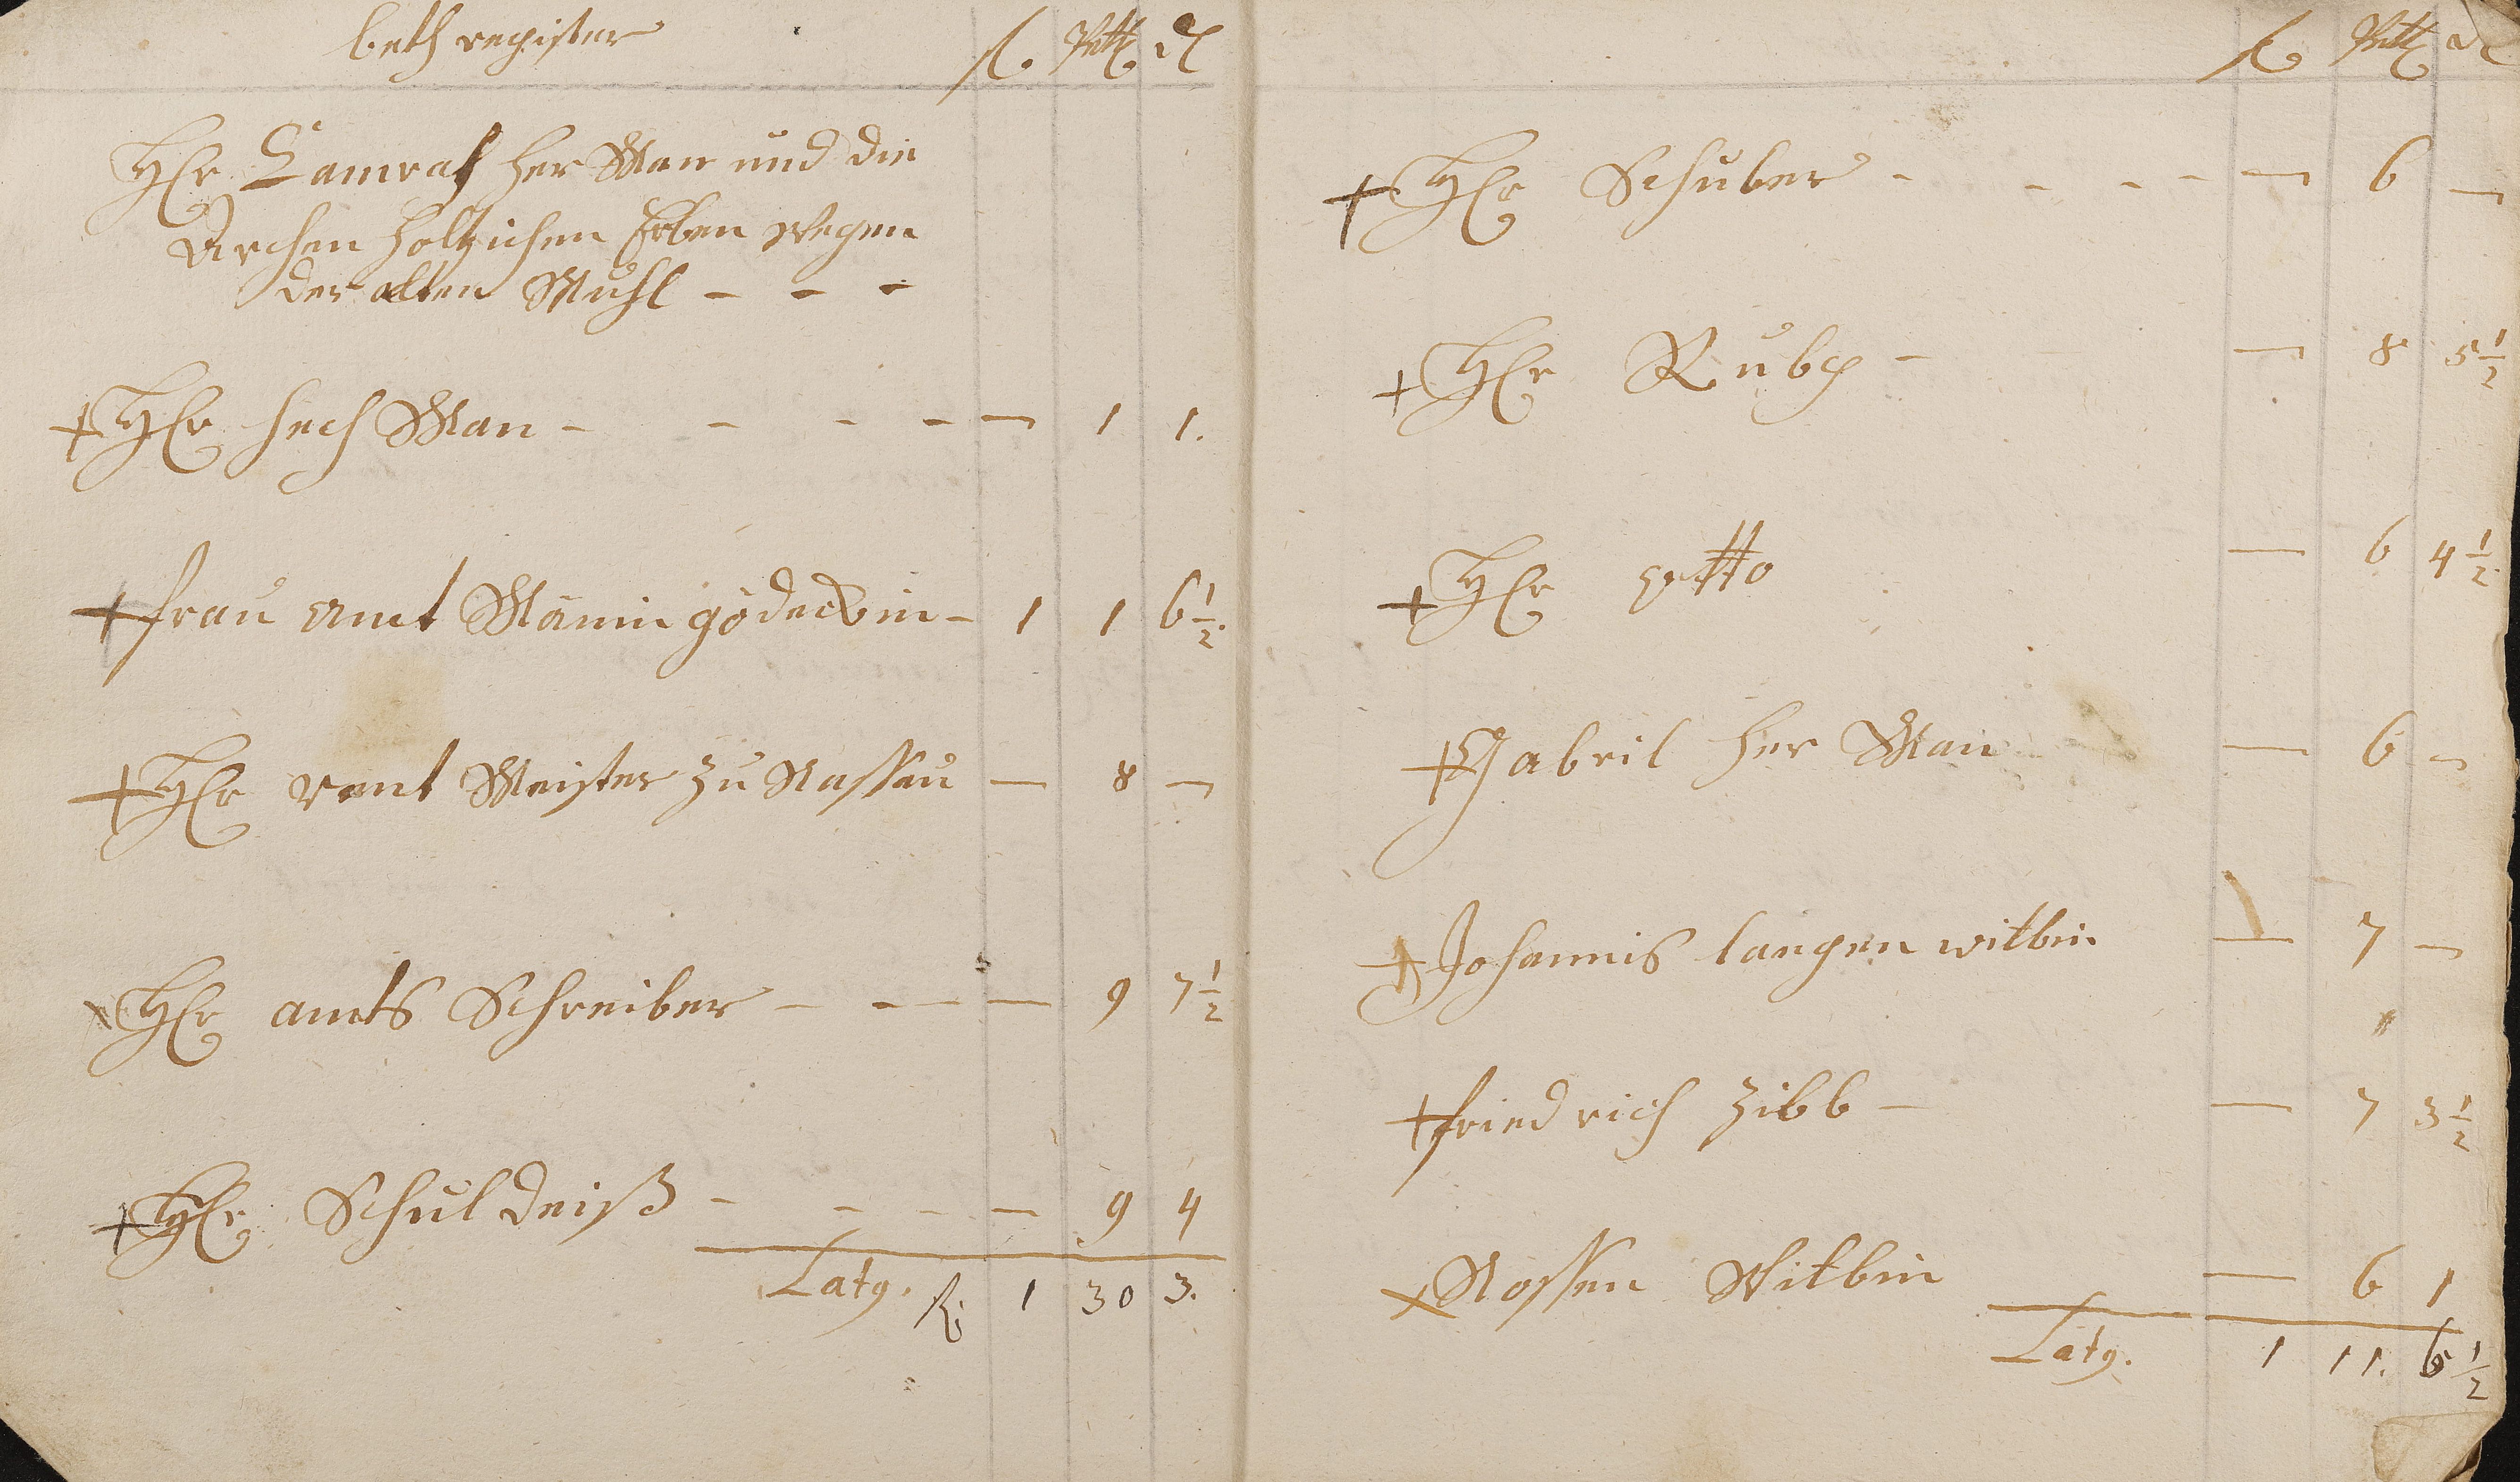 beth register fl. Rtt d
Hr Camrath her Man und die
Archen holtzischen Erben wegen
der alten Muhl - - -
Hr hech Man - - - - — 1 1.
frau amt Mänin gödeckin - 1 1 6 1/2.
Hr rent Meister zu Nassau — 8 —
Hr amts Schreiber - - — 9 7 1/2
Hr Schuldeiß - - - — 9 4
Latg. fl. 1 30 3.
fl Rtt d
Hr Schuber - - - - — 6 —
Hr Ruby - — 8 5 1/2
Hr otto — 6 4 1/2.
Gabril her Man — 6 —
Johannis langen witbin — 7 —
friedrich Zibb - — 7 3 1/2
Nossen Witbin — 6 1
Latg. 1 11. 6 1/2